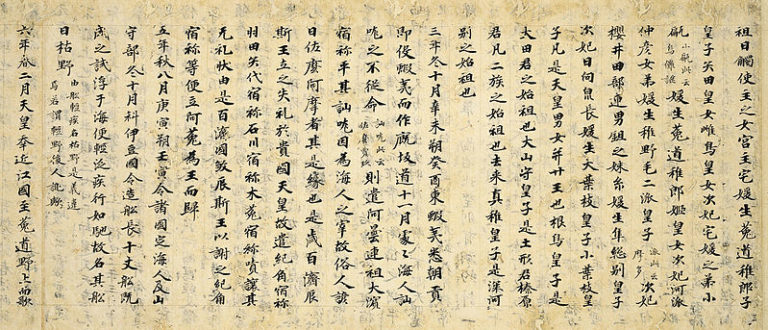 祖日觸使主之女宮主宅媛生菟道稚郎子
皇子矢田皇女雌鳥皇女次妃宅媛之弟小
甂小甂此云烏儺謎媛生菟道稚郎姬皇女次妃河派
仲彥女弟媛生稚野毛二派皇子派此云摩多次妃
櫻井田部連男鉏之妹糸媛生隼總別皇子
次妃日向泉長媛生大葉枝皇子小葉枝皇
子凡是天皇男女并廿王也根鳥皇子是
大田君之始祖也大山守皇子是土形君榛原
君凡二族之始祖也去来真稚皇子是深河
別之始祖也
三年冬十月辛未朔癸酉東蝦夷悉朝貢
即役蝦夷而作廐坂道十一月處〻海人訕
哤之不從命訕哤此云佐麼賣玖則遣阿曇連祖大濱
宿祢平其訕哤因為海人之宰故俗人諺
曰佐麼阿摩者其是緣也是歲百濟辰
斯王立之失礼於貴國天皇故遣紀角宿祢
羽田矢代宿祢石川宿祢木菟宿祢嘖讓其
无礼狀由是百濟國敎辰斯王以謝之紀角
宿祢等便立阿菀為王而歸
五年秋八月庚寅朔壬寅令諸國定海人及山
守部冬十月科伊豆國令造船長十丈船既
成之試浮于海便輕泛疾行如馳故名其船
曰枯野由船輕疾名枯野是義違焉若謂輕野後人訛歟
六年春二月天皇幸近江國至菟道野上而歌